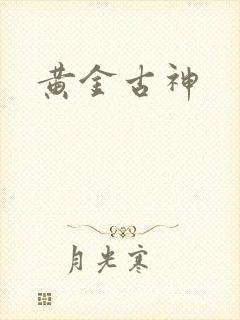 黄金古神
月光寒